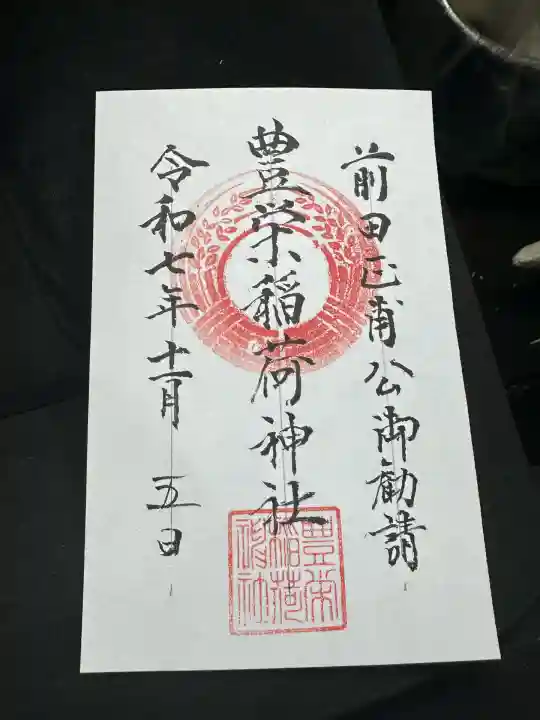 前田正甫公御勧請
豊栄稲荷神社
令和七年十一月 五日
豊栄
稲荷
神社